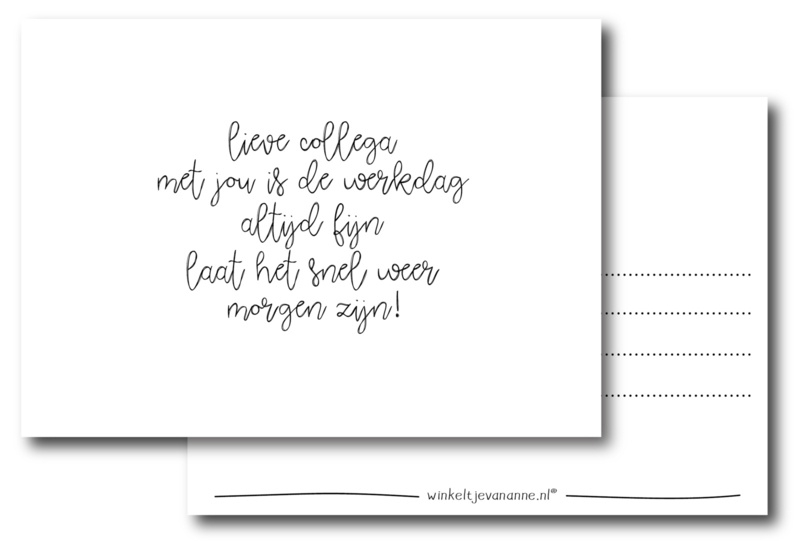 lieve collega
met jou is de werkdag
altijd fijn
laat het snel weer
morgen zijn!
winkeltjevananne.nl®